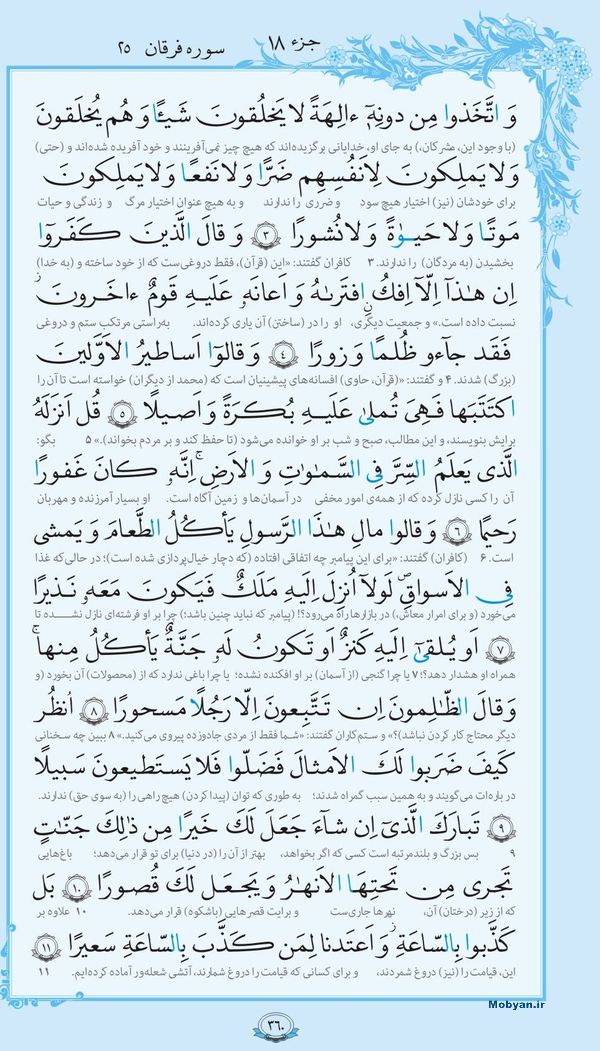 جزء ۱۸
سوره فرقان ۲۵
وَ اتَّخَذوا مِن دونِهٖٓ ءالِهَةً لا يَخلُقونَ شَيـًٔا وَ هُم يُخلَقونَ
(با وجود این، مشرکان،) به جای او، خدایانی برگزیده‌اند که هیچ چیز نمی‌آفرینند و خود آفریده شده‌اند و (حتی)
وَلا يَملِكونَ لِاَنفُسِهِم ضَرًّا وَلا نَفعًا وَلا يَملِكونَ
برای خودشان (نیز) اختیار هیچ سود و ضرری را ندارند و به هیچ عنوان اختیار مرگ و زندگی و حیات
مَوتًا وَلا حَيوٰةً وَلا نُشورًا ﴿۳﴾ وَ قالَ الَّذينَ كَفَروا
بخشیدن (به مردگان) را ندارند. ۳ کافران گفتند: «این (قرآن)، فقط دروغی‌ست که از خود ساخته و (به خدا)
اِن هٰذآ اِلّآ اِفكٌ افتَرىٰهُ وَ اَعانَهٗ عَلَيهِ قَومٌ ءاخَرونَ
نسبت داده است.» و جمعیت دیگری، او را در (ساختن) آن یاری کرده‌اند. به‌راستی مرتکب ستم و دروغی
فَقَد جآءو ظُلمًا وَ زورًا ﴿۴﴾ وَ قالوٓا اَساطيرُ الاَوَّلينَ
(بزرگ) شدند. ۴ و گفتند: «(قرآن، حاوی) افسانه‌های پیشینیان است که (محمد از دیگران) خواسته است تا آن را
اكتَتَبَها فَهِيَ تُملىٰ عَلَيهِ بُكرَةً وَ اَصيلًا ﴿۵﴾ قُل اَنزَلَهُ
برایش بنویسند، و این مطالب، صبح و شب بر او خوانده می‌شود (تا حفظ کند و بر مردم بخواند).» ۵ بگو:
الَّذي يَعلَمُ السِّرَّ فِي السَّمٰوٰتِ وَ الاَرضِ ۚ اِنَّهٗ كانَ غَفورًا
آن را کسی نازل کرده که از همه‌ی امور مخفی در آسمان‌ها و زمین آگاه است. او بسیار آمرزنده و مهربان
رَحيمًا ﴿۶﴾ وَ قالوا مالِ هٰذَا الرَّسولِ يَأكُلُ الطَّعامَ وَ يَمشي
است. ۶ (کافران) گفتند: «برای این پیامبر چه اتفاقی افتاده (که دچار خیال‌پردازی شده است)؛ در حالی‌که غذا
فِي الاَسواقِ ۙ لَولآ اُنزِلَ اِلَيهِ مَلَكٌ فَيَكونَ مَعَهٗ نَذيرًا
می‌خورد (و برای امرار معاش،) در بازارها راه می‌رود؟! (پیامبر که نباید چنین باشد؛) چرا بر او فرشته‌ای نازل نشده تا
﴿۷﴾ اَو يُلقىٰٓ اِلَيهِ كَنزٌ اَو تَكونُ لَهٗ جَنَّةٌ يَأكُلُ مِنها ۚ
همراه او هشدار دهد؟! ۷ یا چرا گنجی (از آسمان) بر او افکنده نشده؛ یا چرا باغی ندارد که از (محصولات) آن بخورد (و
وَ قالَ الظّٰلِمونَ اِن تَتَّبِعونَ اِلّا رَجُلًا مَسحورًا ﴿۸﴾ اُنظُر
دیگر محتاج کار کردن نباشد)؟» و ستم‌کاران گفتند: «شما فقط از مردی جادوزده پیروی می‌کنید.» ۸ ببین چه سخنانی
كَيفَ ضَرَبوا لَكَ الاَمثالَ فَضَلّوا فَلا يَستَطيعونَ سَبيلًا
در باره‌ات می‌گویند و به همین سبب گمراه شدند؛ به طوری که توان (پیدا کردن) هیچ راهی را (به سوی حق) ندارند.
﴿۹﴾ تَبارَكَ الَّذيٓ اِن شآءَ جَعَلَ لَكَ خَيرًا مِن ذٰلِكَ جَنّٰتٍ
۹ بس بزرگ و بلندمرتبه است کسی که اگر بخواهد، بهتر از آن را (در دنیا) برای تو قرار می‌دهد؛ باغ‌هایی
تَجري مِن تَحتِهَا الاَنهٰرُ وَ يَجعَل لَكَ قُصورًا ﴿۱۰﴾ بَل
که از زیر (درختان) آن، نهرها جاری‌ست و برایت قصرهایی (باشکوه) قرار می‌دهد. ۱۰ علاوه بر
كَذَّبوا بِالسّاعَةِ ۖ وَ اَعتَدنا لِمَن كَذَّبَ بِالسّاعَةِ سَعيرًا ﴿۱۱﴾
این، قیامت را (نیز) دروغ شمردند، و برای کسانی که قیامت را دروغ شمارند، آتشی شعله‌ور آماده کرده‌ایم. ۱۱
Mobyan.ir
۳۶۰